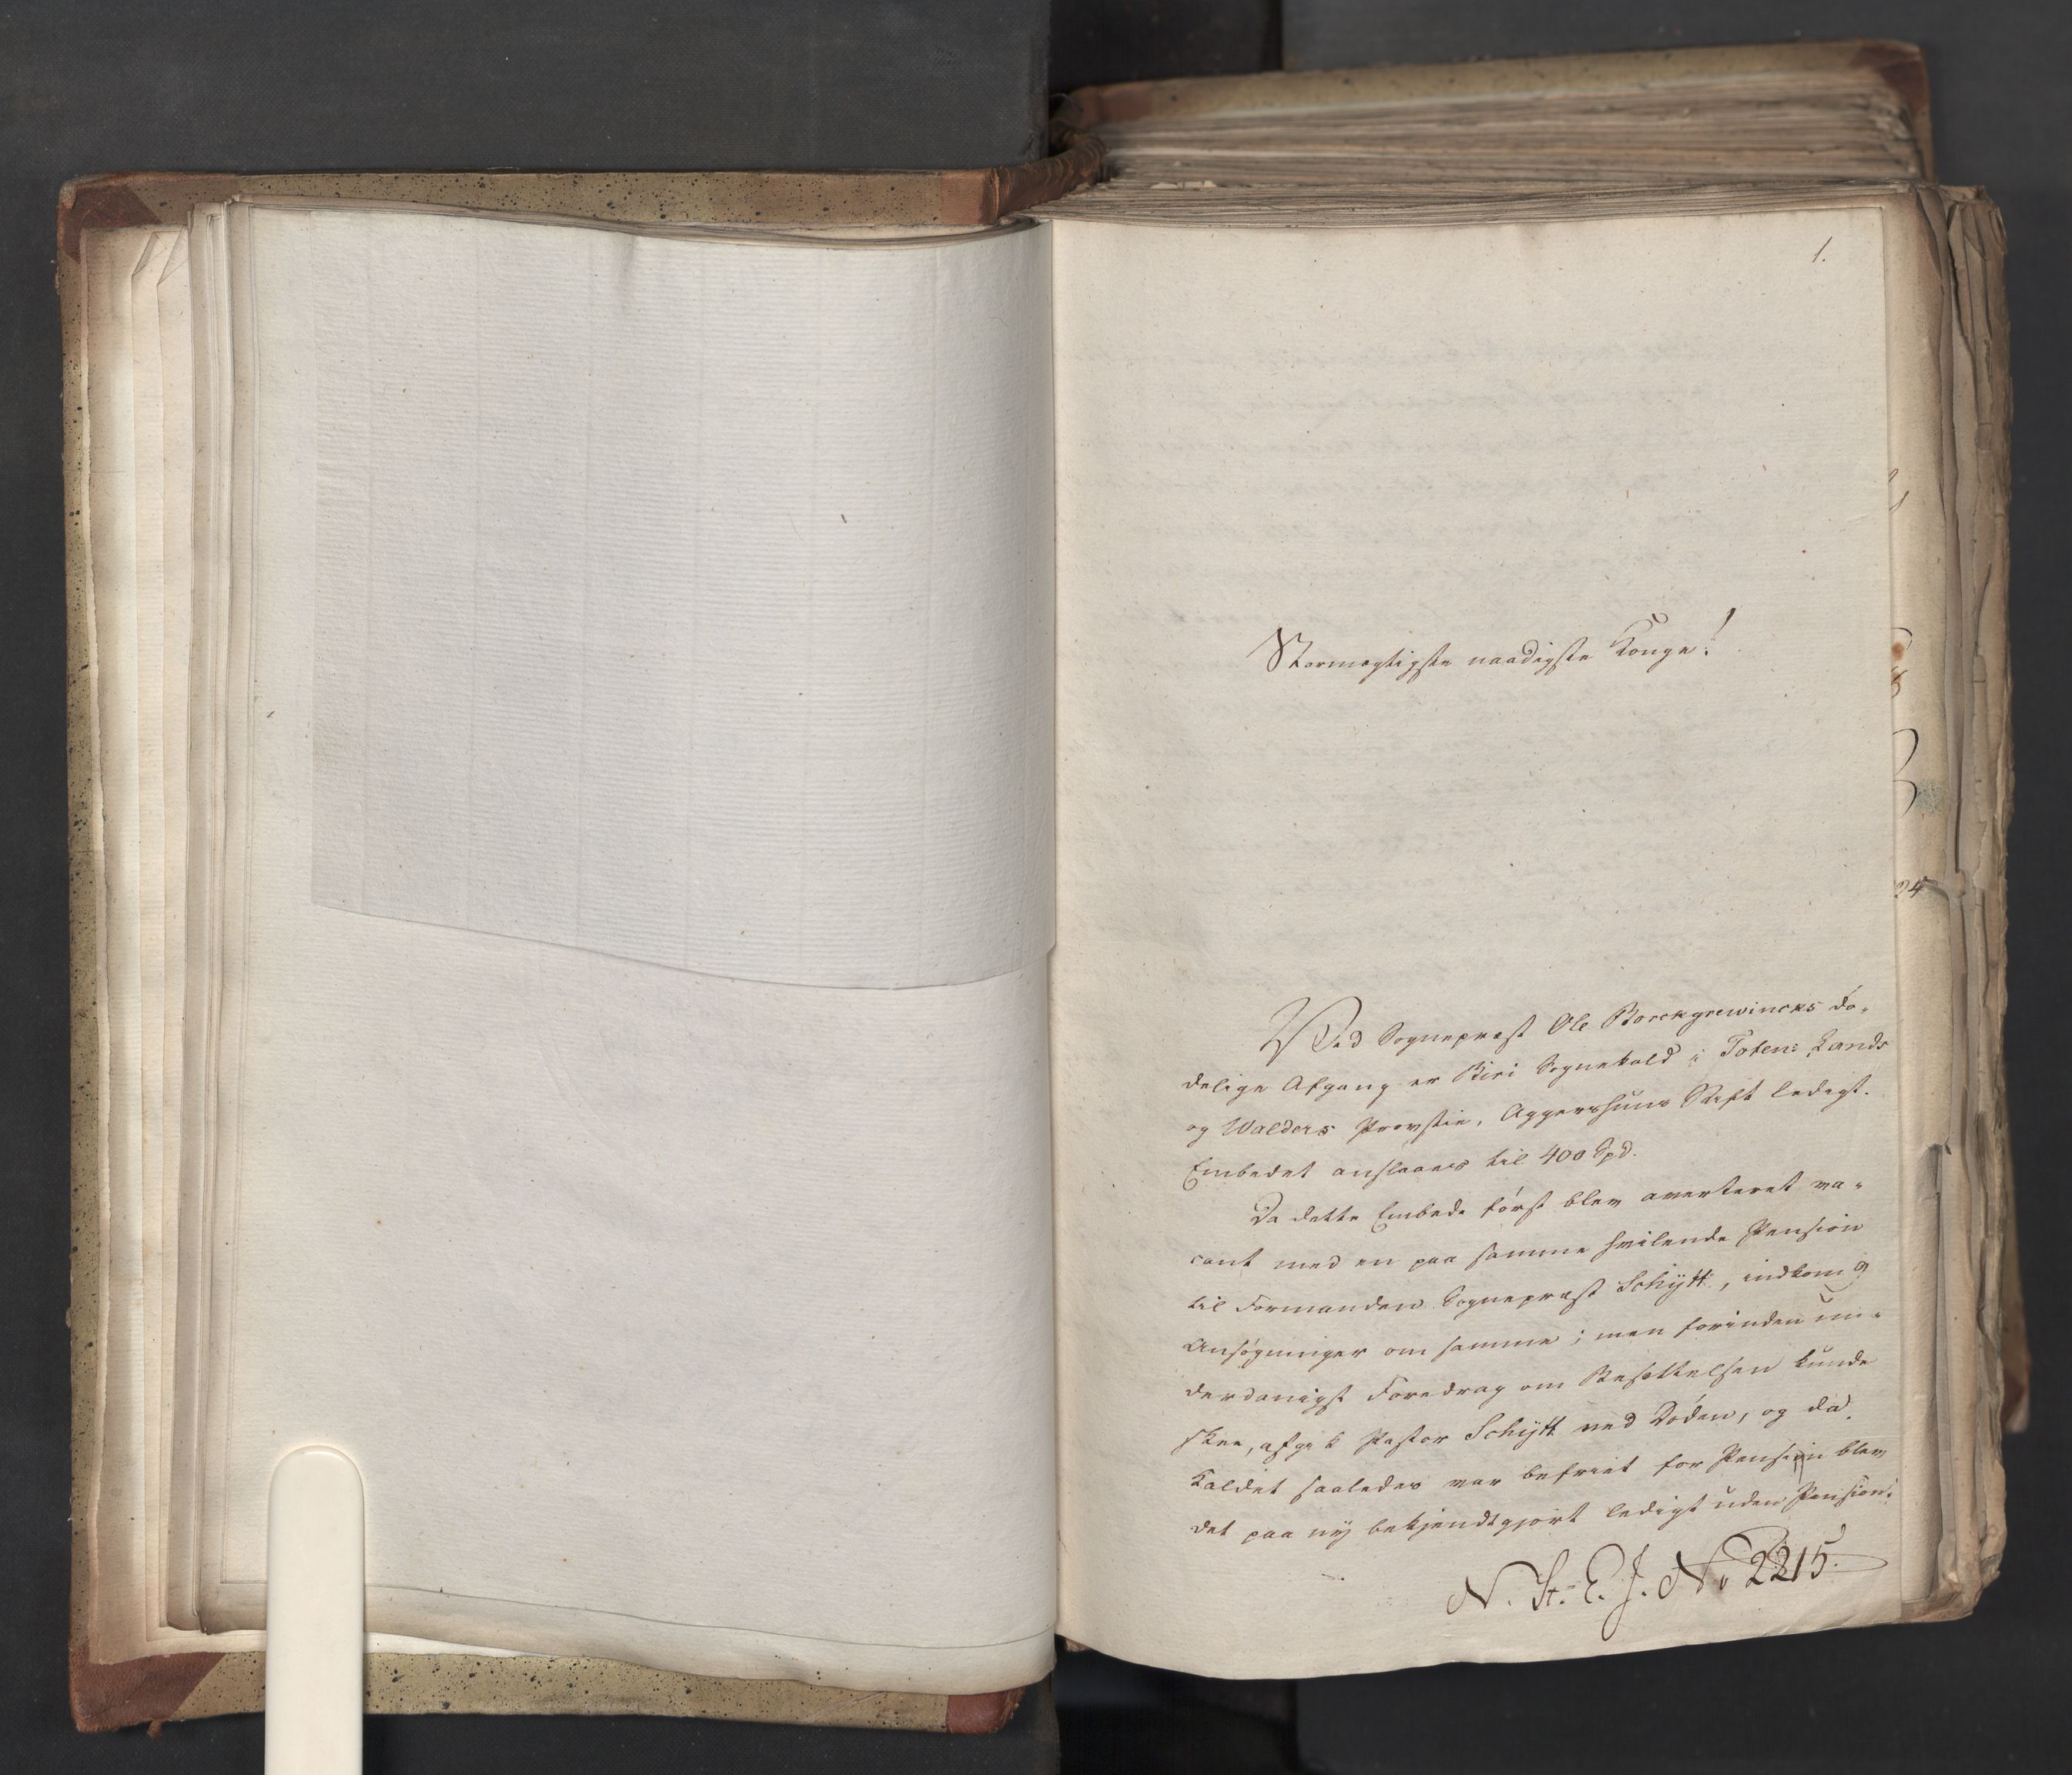 1.
Stormægtigste naadigste Konge!
Ved Sognepræst Ole Borckgrewincks dø-
delige Afgang er Biri Sognekald i Toten: Lands
og Walders Provstie, Aggershuus Stift ledigt.
Embedet anslaaes til 400 Spd.
Da dette Embede først blev averteret va-
cant med en paa samme hvilende Pension
til Formanden Sognepræst Schÿtt, indkom 9
Ansøgninger om samme; men forinden un-
derdanigst Foredrag om Besættelsen kunde
skee, afgik Pastor Schÿtt ved Døden, og da
Kaldet saaledes var befriet for Pension blev
det paa nÿ bekjendtgjort ledigt uden Pension.
N. St. E. J. No 2215.
24